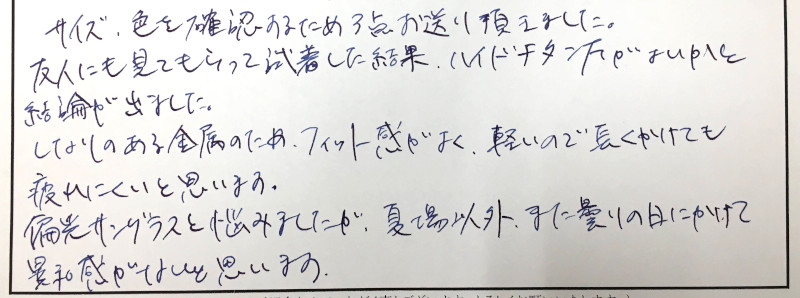 サイズ、色を確認するため3点お送り頂きました。
友人にも見てもらって試着した結果、ハイドチタン方がよいかと
結論が出ました。
しなりのある金属のため、フィット感がよく、軽いので長くかけても
疲れにくいと思います。
偏光サングラスと悩みましたが、夏場以外、また曇りの日にかけて
異和感がないと思います。